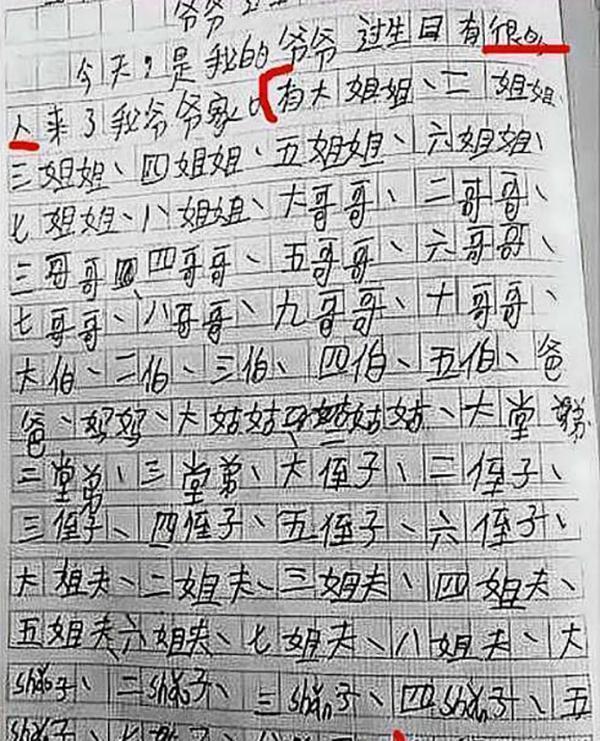 爷爷过生
今天,是我的爷爷过生日有很多
人来了我爷爷家。有大姐姐、二姐姐、
三姐姐、四姐姐、五姐姐、六姐姐、
七姐姐、八姐姐、大哥哥、二哥哥、
三哥哥四、四哥哥、五哥哥、六哥哥、
七哥哥、八哥哥、九哥哥、十哥哥、
大伯、二伯、三伯、四伯、五伯、爸
爸、妈妈、大姑姑、二姑姑、大堂弟
二堂弟、三堂弟、大侄子、二侄子、
三侄子、四侄子、五侄子、六侄子、
大姐夫、二姐夫、三姐夫、四姐夫、
五姐夫、六姐夫、七姐夫、八姐夫、大
shǎo子、二shǎo子、三shǎo子、四shǎo子、五